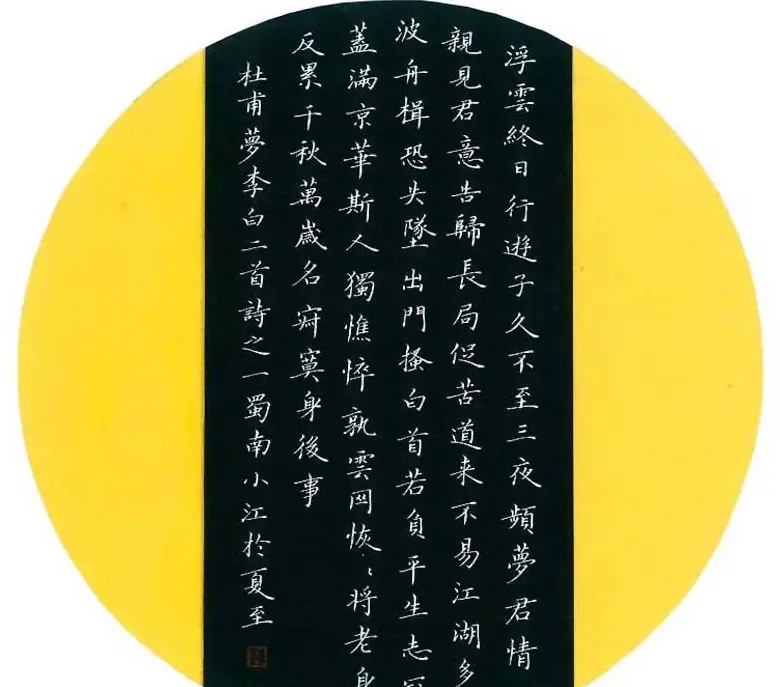 浮雲終日行遊子久不至三夜頻夢君情
親見君意告歸長局促苦道来不易江湖多
波舟楫恐失墜出門搔白首若負平生志冠
蓋滿京華斯人獨憔悴孰雲网恢〻將老身
反累千秋萬歲名寂寞身後事
杜甫夢李白二首詩之一蜀南小江於夏至